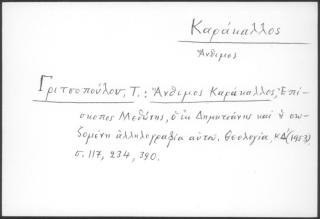 Καράκαλλος
Ἄνθιμος
Γριτσοπούλου, Τ.: Ἄνθιμος Καράκαλλος, Ἐπί-
σκοπος Μεθώνης, ὁ ἐκ Δημητσάνης καὶ ἡ σω-
ζομένη ἀλληλογραφία αὐτοῦ. Θεολογία, ΚΔ΄(1953),
σ. 117, 234, 390.